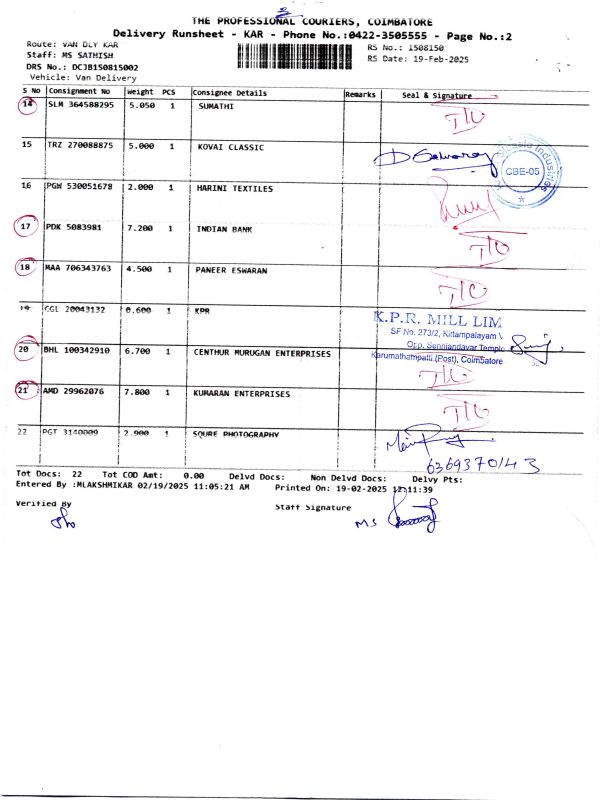 THE PROFESSIONAL COURIERS, COIMBATORE
Delivery Runsheet - KAR - Phone No.:0422-3505555 - Page No.:2
Route: VAN DLY KAR
RS No.: 1508150
Staff: MS SATHISH
RS Date: 19-Feb-2025
DRS No.: DCJB150815002
Vehicle: Van Delivery
S No Consignment No Weight PCS Consignee Details Remarks Seal & Signature
14 SLM 364588295 5.050 1 SUMATHI
T/O
15 TRZ 270088875 5.000 1 KOVAI CLASSIC
CBE-05
16 PGW 530051678 2.000 1 HARINI TEXTILES
17 PDK 5083981 7.200 1 INDIAN BANK
T/O
18 MAA 706343763 4.500 1 PANEER ESWARAN
T/O
19 CGL 20043132 0.600 1 KPR
K.P.R. MILL LIM
SF No. 273/2, Kittampalayam \
Opp. Senniandavar Temple
Karumathampatti (Post), Coimbatore
20 BHL 100342910 6.700 1 CENTHUR MURUGAN ENTERPRISES
T/O
21 AMD 29962076 7.800 1 KUMARAN ENTERPRISES
T/O
22 PGT 3140009 2.900 1 SQURE PHOTOGRAPHY
6369370143
Tot Docs: 22 Tot COD Amt: 0.00 Delvd Docs: Non Delvd Docs: Delvy Pts:
Entered By :MLAKSHMIKAR 02/19/2025 11:05:21 AM Printed On: 19-02-2025 12:11:39
Verified By
Staff Signature
MS